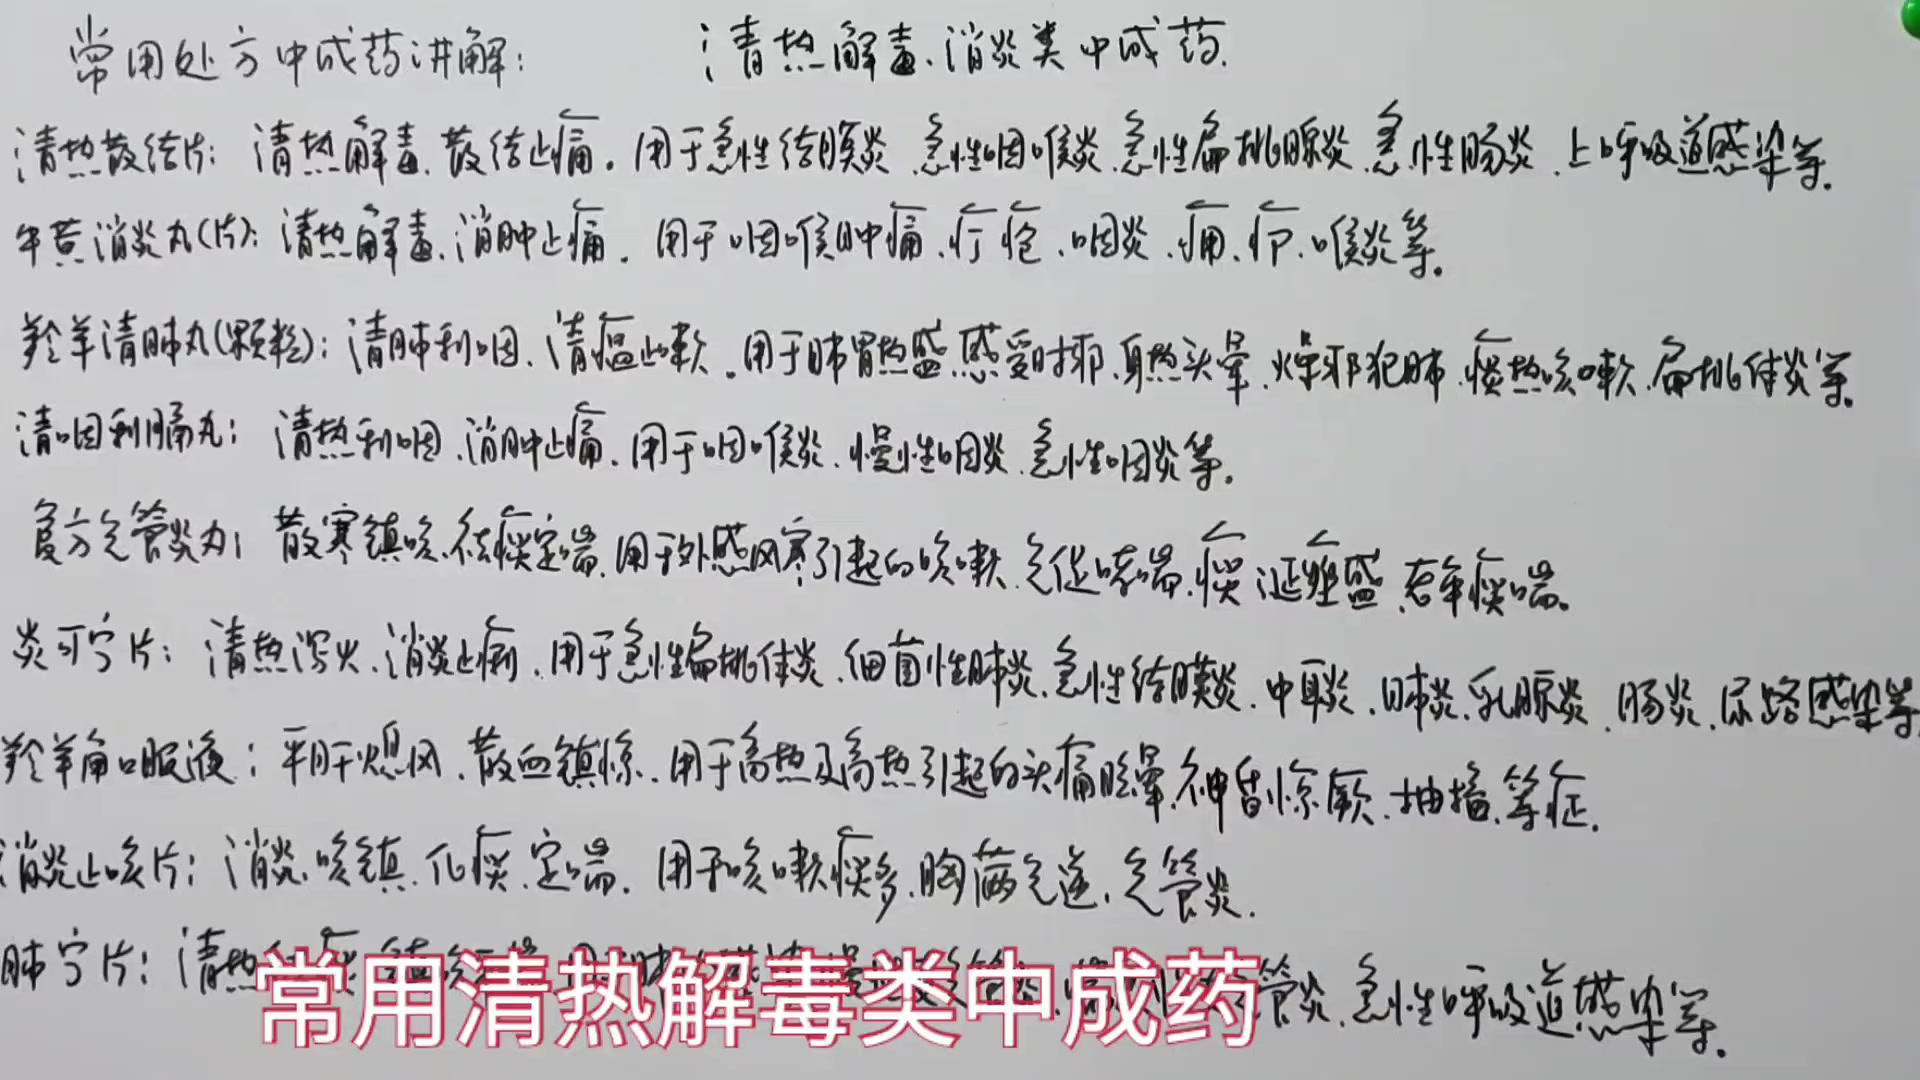 常用处方中成药讲解： 清热解毒、消炎类中成药.
清热散结片：清热解毒、散结止痛。用于急性结膜炎、急性咽喉炎、急性扁桃腺炎、急性肠炎、上呼吸道感染等.
牛黄消炎丸(片)：清热解毒、消肿止痛。用于咽喉肿痛、疔疮、咽炎、痈、疖、喉炎等。
羚羊清肺丸(颗粒)：清肺利咽、清瘟止嗽。用于肺胃热盛、感受时邪、身热头晕、燥邪犯肺、痰热咳嗽、扁桃体炎等。
清咽利膈丸：清热利咽、消肿止痛、用于咽喉炎、慢性咽炎、急性咽炎等。
复方气管炎丸：散寒镇咳、祛痰定喘、用于外感风寒引起的咳嗽、气促哮喘、痰涎壅盛、老年痰喘。
炎可宁片：清热泻火、消炎止痢、用于急性扁桃体炎、细菌性肺炎、急性结膜炎、中耳炎、肺炎、乳腺炎、肠炎、尿路感染等
羚羊角口服液：平肝熄风、散血镇惊、用于高热及高热引起的头痛眩晕、神昏惊厥、抽搐、等症.
消炎止咳片：消炎、咳镇、化痰、定喘、用于咳嗽痰多、胸满气逆、气管炎.
肺宁片：清热 管炎、急性呼吸道感染等。
常用清热解毒类中成药